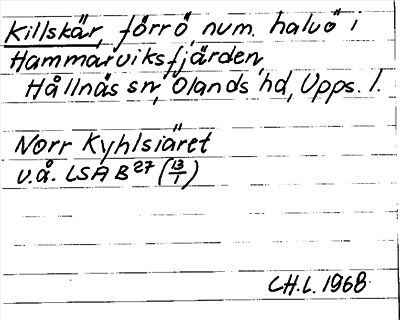 Killskär, förrö num. halvö i
Hammarviksfjärden,
Hållnäs sn, Olands hd, Upps. l.
Norr Kyhlsiäret
u.å. LSA B 27 (13/1)
C.H.L. 1968